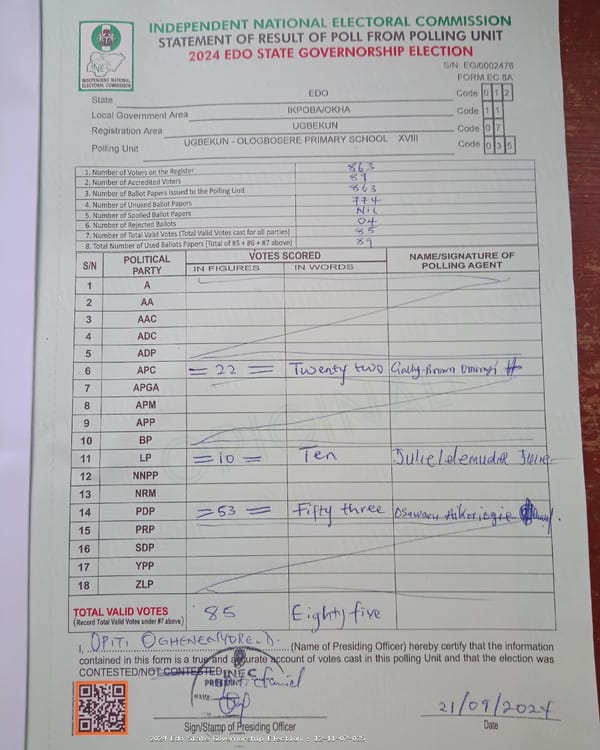 INDEPENDENT NATIONAL ELECTORAL COMMISSION
STATEMENT OF RESULT OF POLL FROM POLLING UNIT
2024 EDO STATE GOVERNORSHIP ELECTION
INEC
INDEPENDENT NATIONAL
ELECTORAL COMMISSION
S/N. EG/0002476
FORM EC 8A
State EDO Code 0 1 2
Local Government Area IKPOBA/OKHA Code 1 1
Registration Area UGBEKUN Code 0 7
Polling Unit UGBEKUN - OLOGBOSERE PRIMARY SCHOOL XVIII Code 0 3 5
1. Number of Voters on the Register 863
2. Number of Accredited Voters 89
3. Number of Ballot Papers Issued to the Polling Unit 863
4. Number of Unused Ballot Papers 774
5. Number of Spoiled Ballot Papers Nil
6. Number of Rejected Ballots 04
7. Number of Total Valid Votes (Total Valid Votes cast for all parties) 85
8. Total Number of Used Ballots Papers (Total of #5 + #6 + #7 above) 89
S/N POLITICAL PARTY VOTES SCORED NAME/SIGNATURE OF POLLING AGENT
IN FIGURES IN WORDS
1 A
2 AA
3 AAC
4 ADC
5 ADP
6 APC = 22 = Twenty two
7 APGA
8 APM
9 APP
10 BP
11 LP = 10 = Ten
12 NNPP
13 NRM
14 PDP = 53 = Fifty three
15 PRP
16 SDP
17 YPP
18 ZLP
TOTAL VALID VOTES 85 Eighty five
(Record Total Valid Votes under #7 above)
I, OPITI (Name of Presiding Officer) hereby certify that the information
contained in this form is a true and accurate account of votes cast in this polling Unit and that the election was
CONTESTED/NOT CONTESTED
INEC
NAME:
Sign/Stamp of Presiding Officer
21/09/2024
Date
2024 Edo State Governorship Election - 12-11-07-035